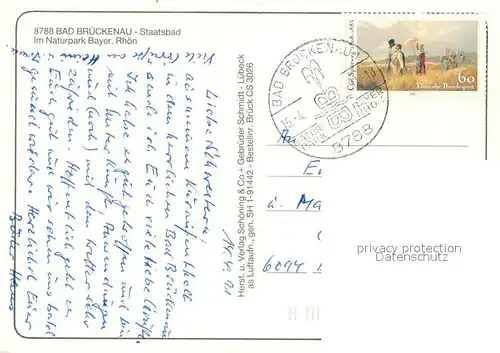 8788 BAD BRÜCKENAU - Staatsbad
Im Naturpark Bayer. Rhön
14.4.91
Liebe Schwestern!
aus meinem Kuraufenthalt
in dem herrlichen Bad Brückenau
sende ich Euch viele liebe Grüße.
Ich habe es gut getroffen und bin
mit Unterkunft, Anwendungen
und (noch) mit dem Wetter sehr
zufrieden. Hoffentlich geht es
Euch gut und wir sehen uns bald
gesund wieder. Herzlichst Euer
Bruder Hans
Viele Grüße
Herst. u. Verlag Schöning & Co + Gebrüder Schmidt - Lübeck
as Luftaufn., gen. SH 1-91442 - Bestellnr. Brück CS 3026
BAD BRÜCKENAU
15.-4.
8788
Carl Spitzweg 1808-1885
60
Deutsche Bundespost
An
u.
6094
privacy protection
Datenschutz